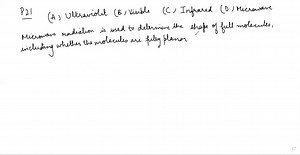 P21 (A) Ultraviolet (B) Visible (C) Infrared (D) Microwave
Microwave radiation is used to determine the shape of full molecules,
including whether the molecules are planar